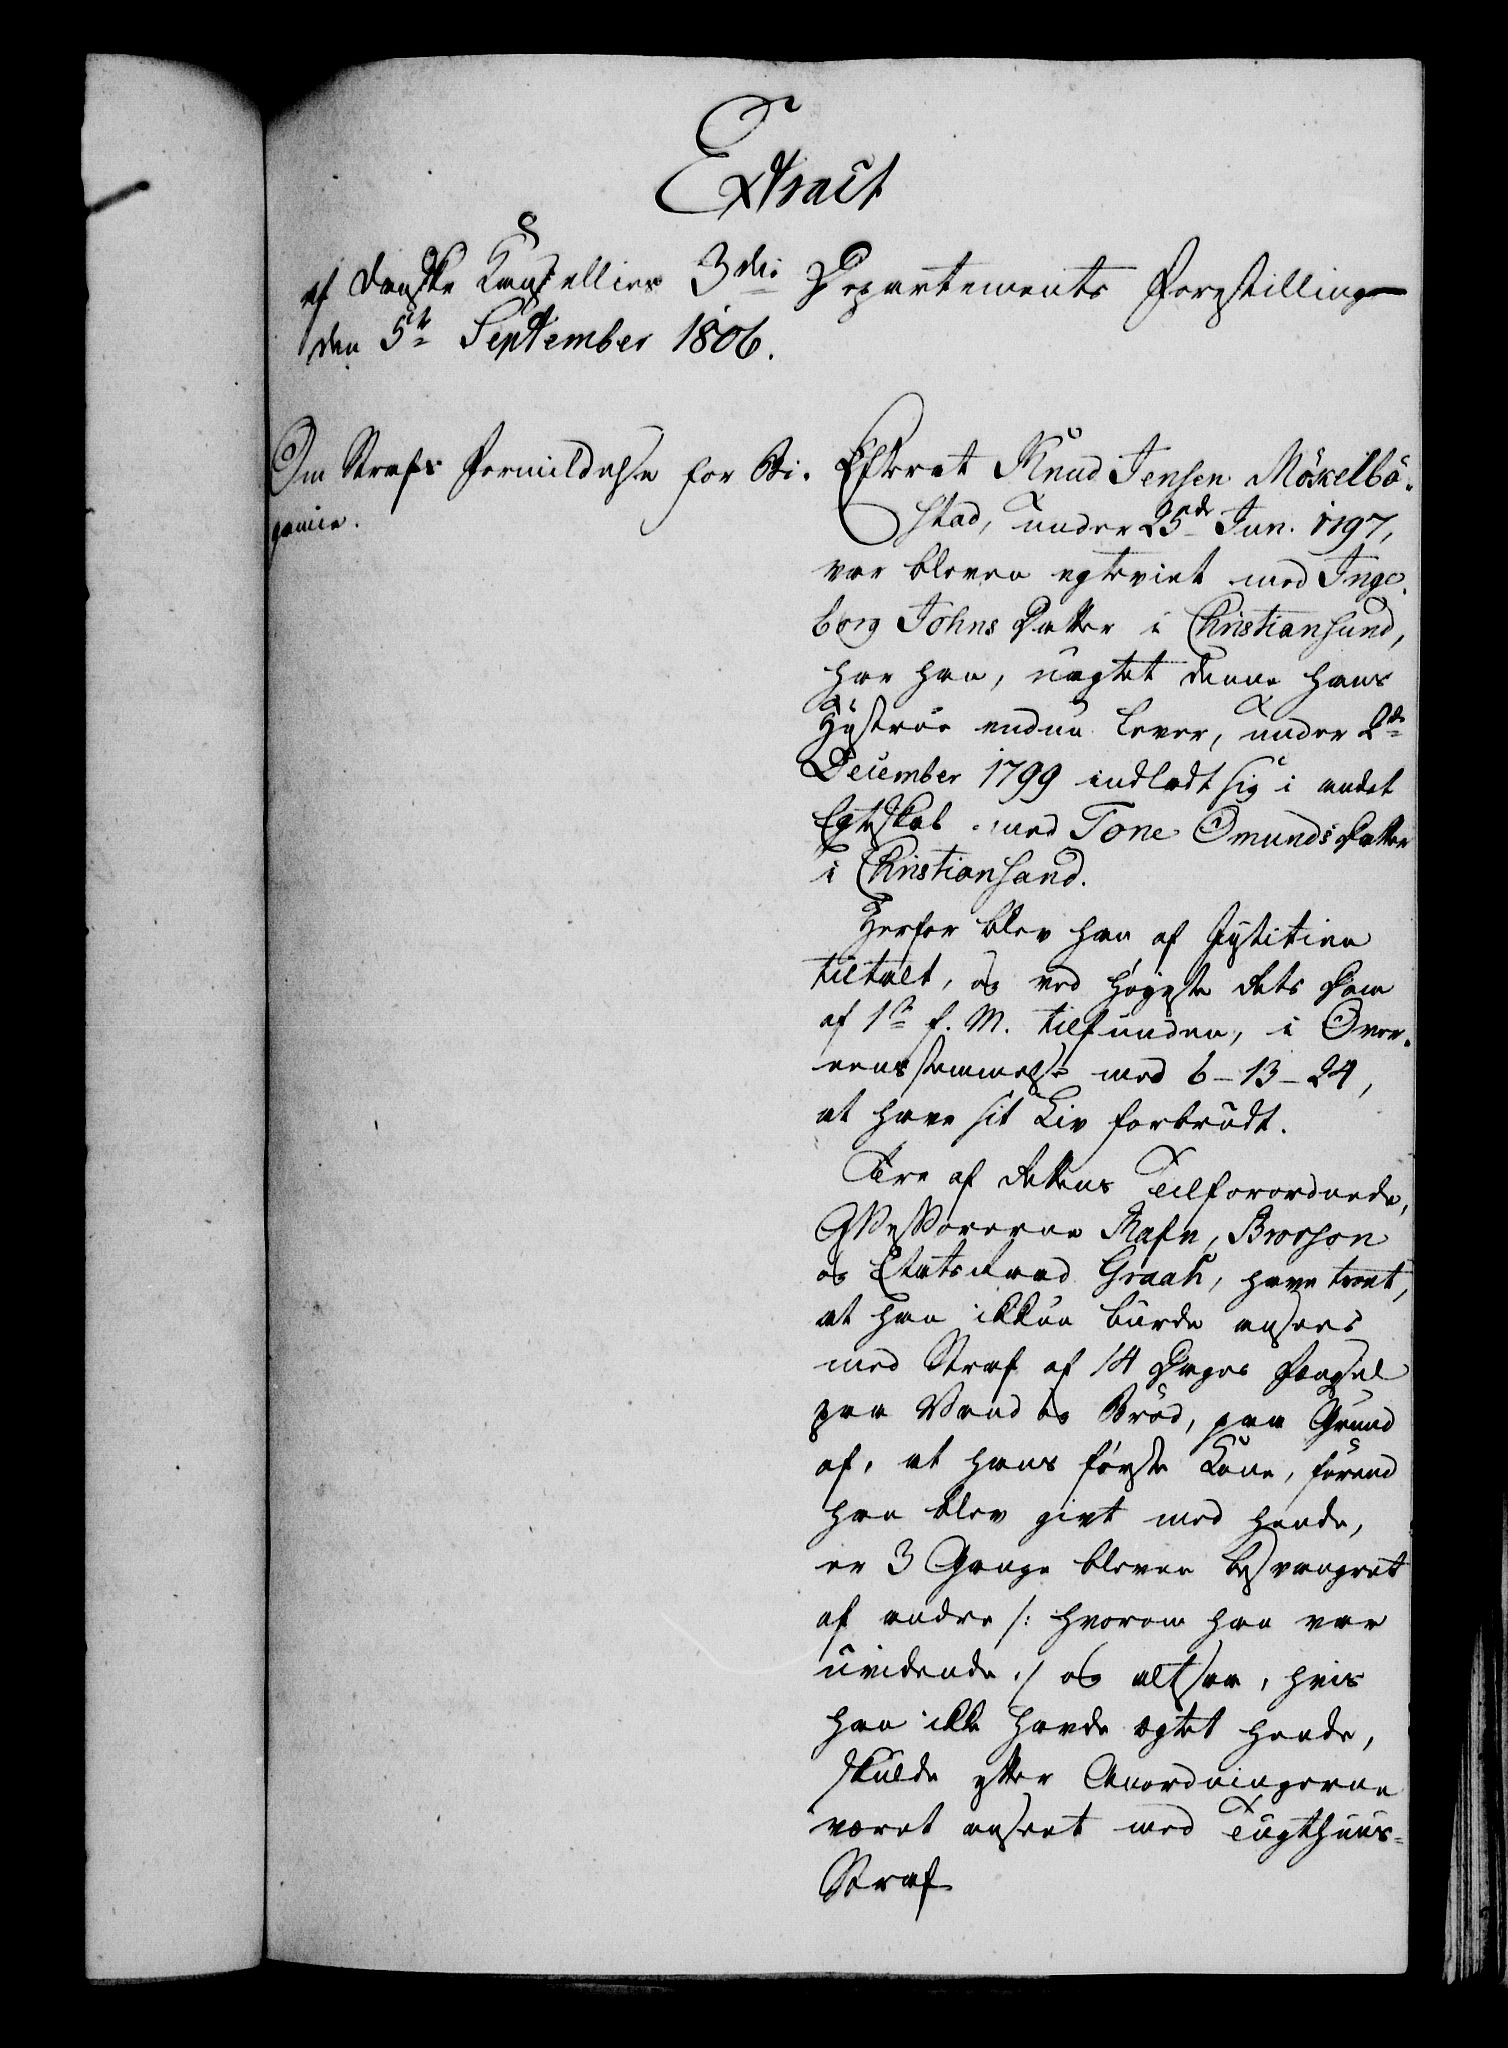 Extract
af danske Kancellies 3die Departements Forestilling
den 5te September 1806.
Om Strafs Formildelse for Bi-
gamie.
Efterat Knud Jensen Möxelbö-
stad, under 25de Jun. 1797,
var bleven egteviet med Inge-
borg Johns Datter i Christiansund,
har han, uagtet denne hans
Hustrue endnu lever, under 2de
December 1799 indladt sig i andet
Egteskab med Tone Omunds Datter
i Christiansand.
Herfor blev han af Justitien
tiltalt, og ved Høyeste Rets Dom
af 1ste f. M. tilfunden, i Over-
eensstemmelse med 6-13-24,
at have sit Liv forbrudt.
Tre af Rettens Tilforordnede,
Assessorerne Rafn, Brorson
og Etatsraad Graah, have troet,
at han ikkun burde ansees
med Straf af 14 Dages Fængsel
paa Vand og Bröd, paa Grund
af, at hans første Kone, förend
han blev givt med hende,
er 3 Gange bleven besvangret
af andre /: hvorom han var
uvidende :/ og altsaa, hvis
han ikke havde egtet hende,
skulde efter Anordningerne
været anseet med Tugthuus-
Straf